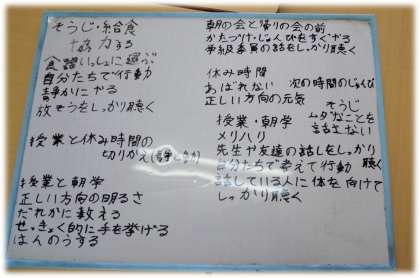 そうじ・給食
協力する
食器いっしょに運ぶ
自分たちで行動
静かにやる
放そうをしっかり聴く
授業と休み時間の
切りかえ
授業と朝学
正しい方向の明るさ
だれかに教える
せっきょく的に手を挙げる
はんのうする
朝の会と帰りの会の前
かたづけ・じゅんびをすぐやる
学級委員の話をしっかり聴く
休み時間
あばれない 次の時間のじゅんび
正しい方向の元気
そうじ
ムダなことを
話さない
授業・朝学
メリハリ
先生や友達の話しをしっかり聴く
自分たちで考えて行動
話している人に体を向けて
しっかり聴く